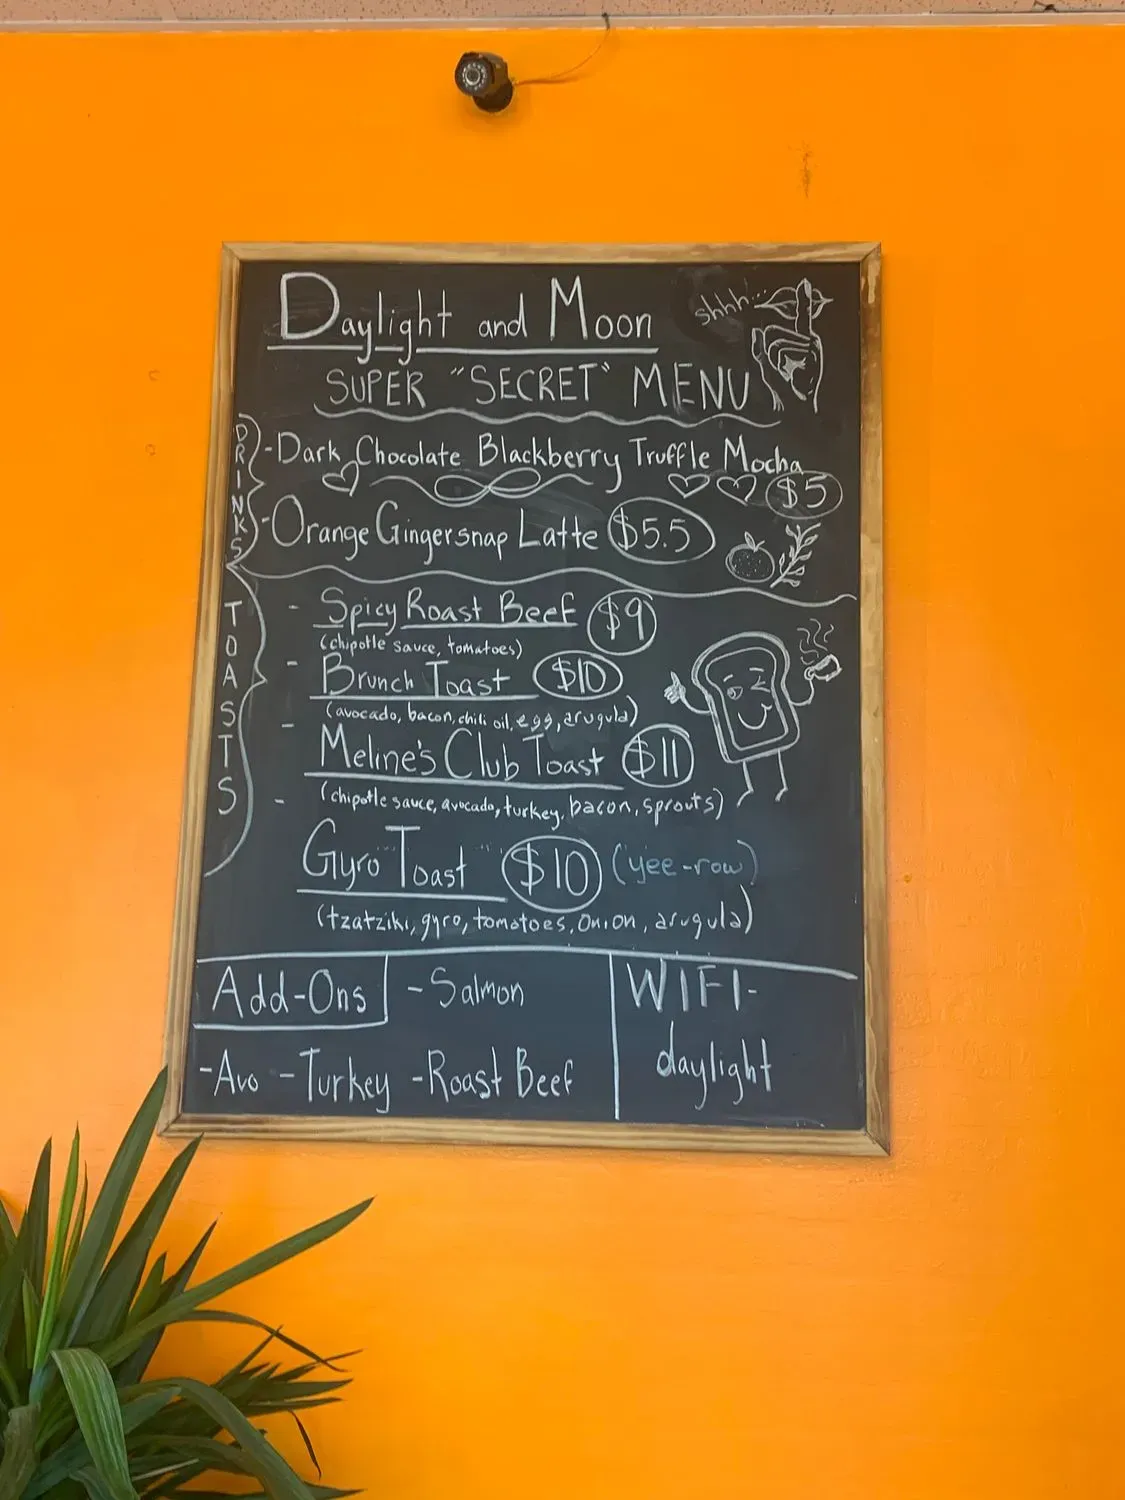 Daylight and Moon
shhh...
SUPER "SECRET" MENU
DRINKS
-Dark Chocolate Blackberry Truffle Mocha
$5
-Orange Gingersnap Latte $5.5
TOASTS
- Spicy Roast Beef $9
(chipotle sauce, tomatoes)
- Brunch Toast $10
(avocado, bacon, chili oil, egg, arugula)
- Meline's Club Toast $11
(chipotle sauce, avocado, turkey, bacon, sprouts)
- Gyro Toast $10 (yee-row)
(tzatziki, gyro, tomatoes, onion, arugula)
Add-Ons
-Salmon
-Avo -Turkey -Roast Beef
WIFI-
daylight